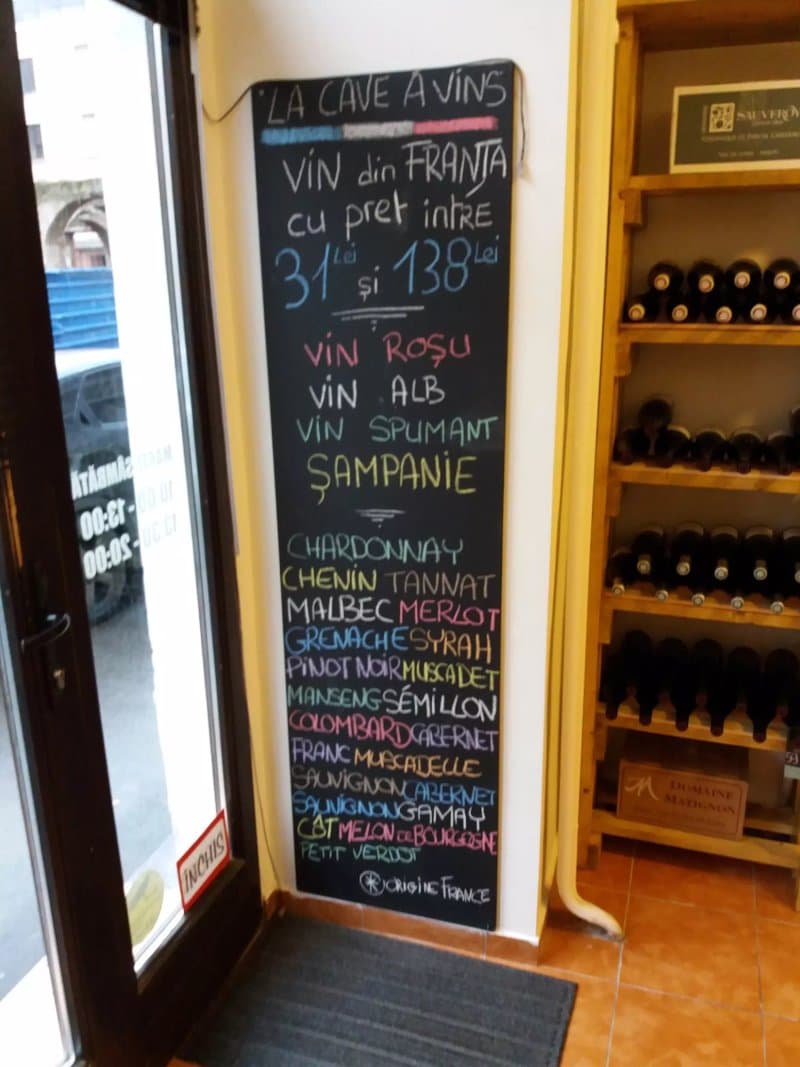 LA CAVE A VINS
VIN din FRANȚA
cu pret intre
31 Lei și 138 Lei
VIN ROȘU
VIN ALB
VIN SPUMANT
ȘAMPANIE
CHARDONNAY
CHENIN TANNAT
MALBEC MERLOT
GRENACHE SYRAH
PINOT NOIR MUSCADET
MANSENG SÉMILLON
COLOMBARD CABERNET
FRANC MUSCADELLE
SAUVIGNON CABERNET
SAUVIGNON GAMAY
CÔT MELON DE BOURGOGNE
PETIT VERDOT
ORIGINE FRANCE
SÂMBĂTĂ
10:00 - 13:00
- 20:00
INCHIS
SAUVEROY
DOMAINE
MATIGNON